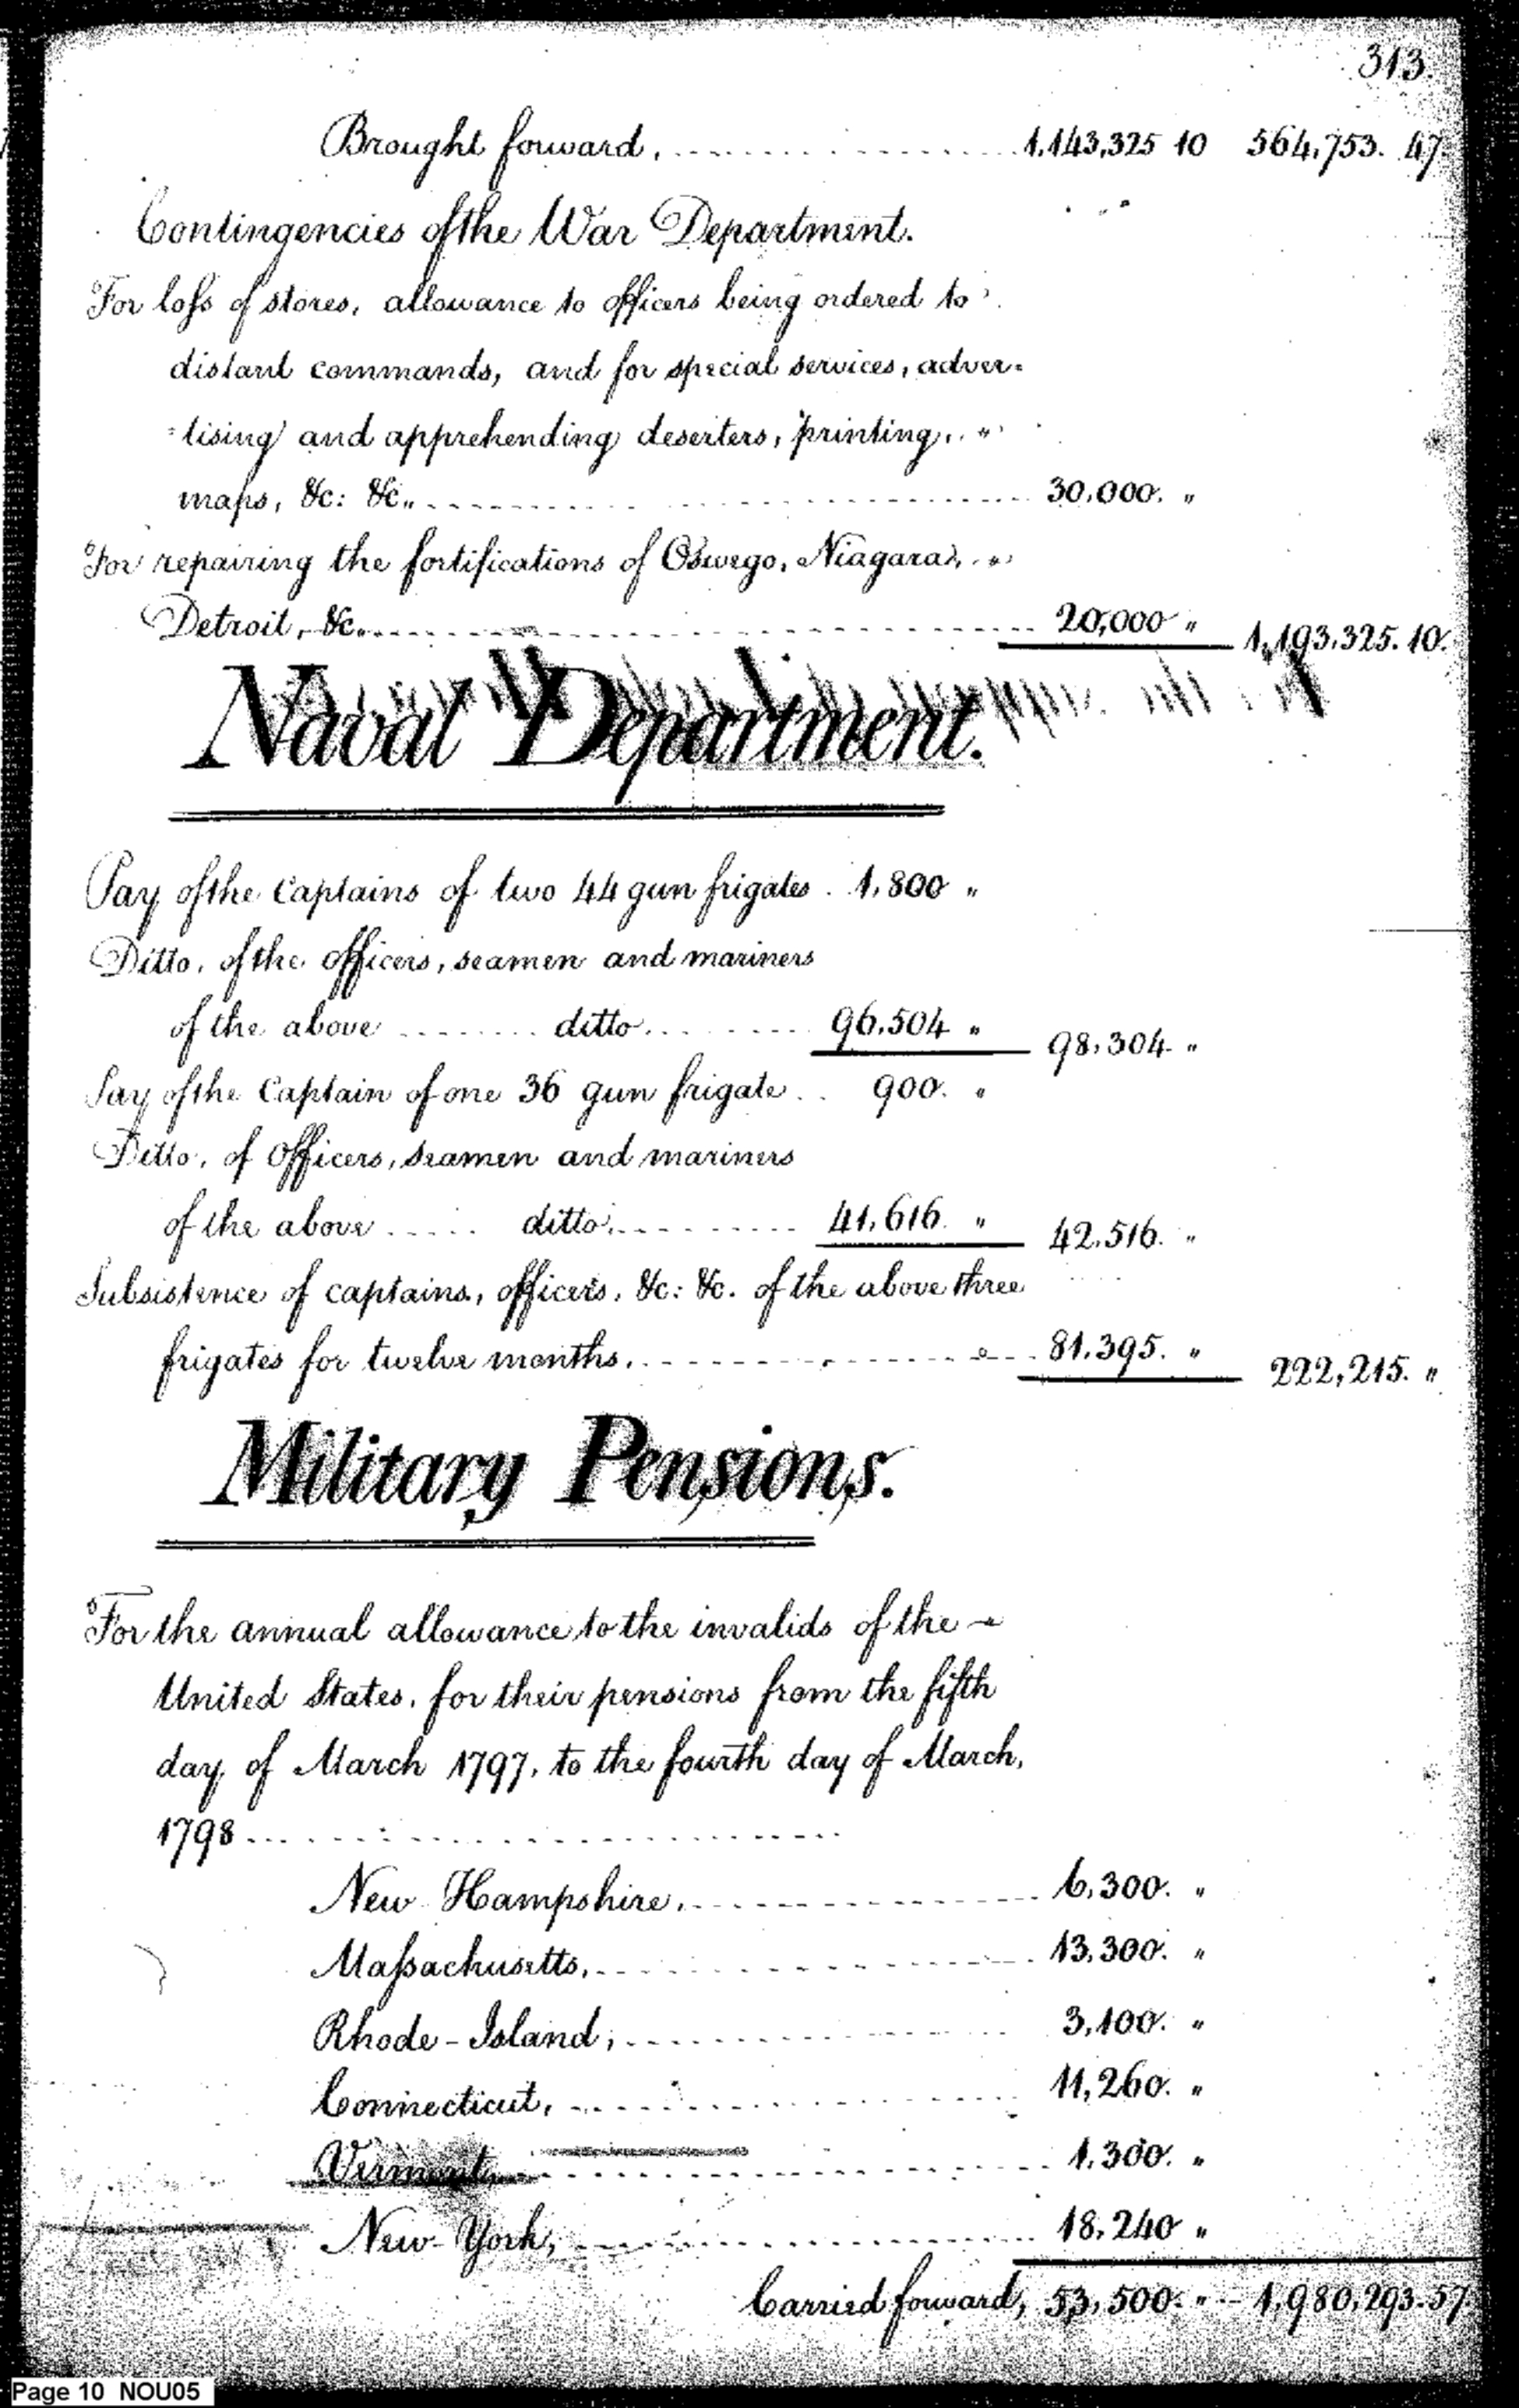 313.
Brought forward, 1,143,325 10 564,753. 47.
Contingencies of the War Department.
For loſs of stores, allowance to officers being ordered to
distant commands, and for special services, adver=
=tising and apprehending deserters, printing, "
maps, &c: &c,. 30,000. "
For repairing the fortifications of Oswego, Niagara, "
Detroit, &c. 20,000 " 1,193,325. 10.
Naval Department.
Pay of the Captains of two 44 gun frigates . 1,800 "
Ditto, of the officers, seamen and mariners
of the above ........ ditto. 96,504 " 98,304. "
Pay of the Captain of one 36 gun frigate .. 900. "
Ditto, of Officers, seamen and mariners
of the above ..... ditto, 41,616. " 42,516. "
Subsistence of captains, officers, &c: &c. of the above three
frigates for twelve months, 81,395. " 222,215. "
Military Pensions.
For the annual allowance to the invalids of the
United States, for their pensions from the fifth
day of March 1797, to the fourth day of March,
1798
New Hampshire, 6,300. "
Maſsachusetts, 13,300. "
Rhode-Island, 3,100. "
Connecticut, 11,260. "
Vermont, 1,300. "
New-York, 18,240 "
Carried forward, 53,500. " 1,980,293.57
Page 10 NOU05